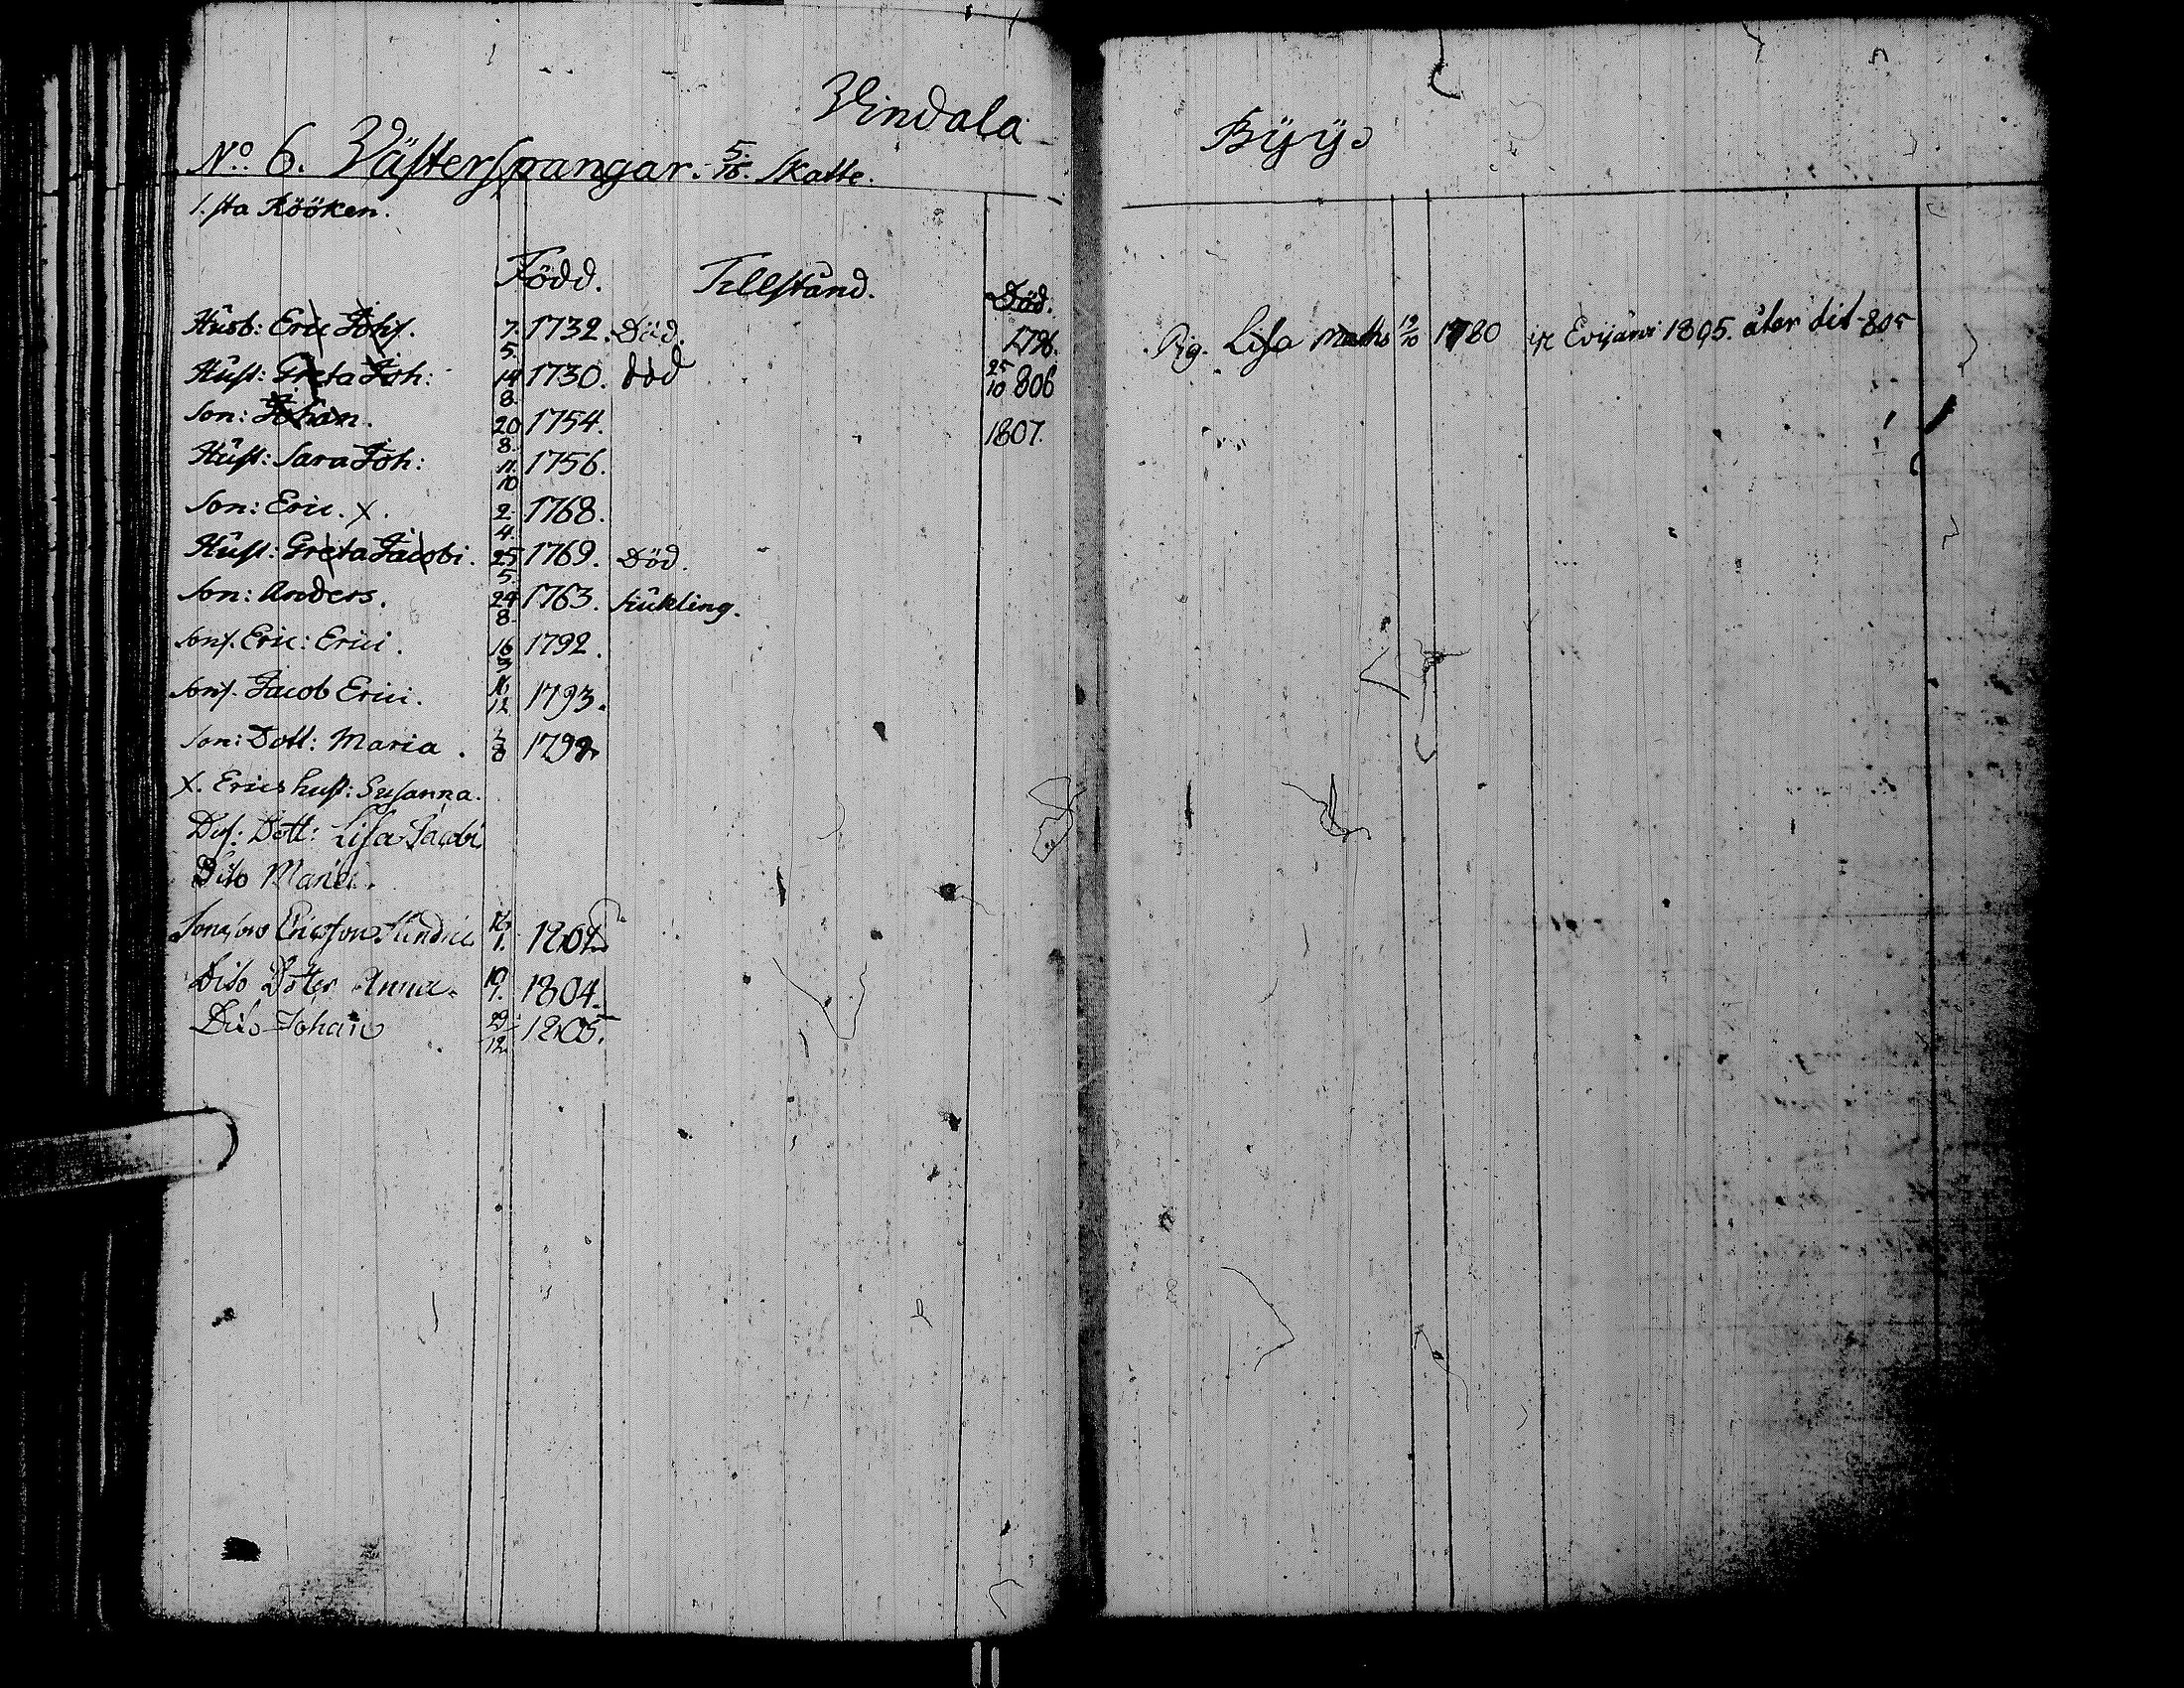 Vindala
No. 6. Västerspangar. 5/16. Skatte.
1.sta Rööken.
Född. Tillstånd. Död.
Husb: Eric Johs. 7. 5. 1732. Död. 1796.
Hust: Greta Joh: 14 8. 1730. död 25 10 806
Son: Johan. 20 8. 1754. 1807.
Hust: Sara Joh: 11. 10 1756.
Son: Eric. X. 2. 4. 1768.
Hust: Greta Jacobi. 25 5. 1769. Död.
Son: Anders. 24 8. 1763. Siukling.
Sons. Eric: Erici. 16 3 1792.
Sons. Jacob Erici. 16 12 1793.
Son: Dott: Maria. 8 1792
X. Erics hust: Susanna.
Des: Dott: Lisa Jacobi
Dito Maria.
Ericsson 1. 1801
Dito Dotter Anna. 10 1. 1804.
Dito Johan 29 12. 1805.
Byys
Pig. Lisa Maths 19/10 1780 1805. åter dit 805